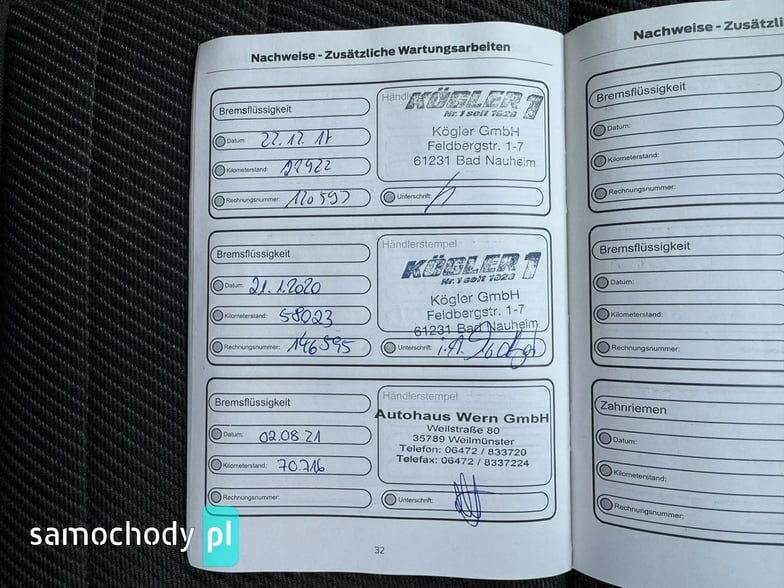 Nachweise - Zusätzliche Wartungsarbeiten
Bremsflüssigkeit
Datum: 22.12.17
Kilometerstand: 27922
Rechnungsnummer: 120597
KÖGLER 1
Nr. 1 seit 1823
Kögler GmbH
Feldbergstr. 1-7
61231 Bad Nauheim
Unterschrift:
Bremsflüssigkeit
Datum: 21.1.2020
Kilometerstand: 58023
Rechnungsnummer: 146595
Händlerstempel
KÖGLER 1
Nr. 1 seit 1823
Kögler GmbH
Feldbergstr. 1-7
61231 Bad Nauheim
Unterschrift: i.A.
Bremsflüssigkeit
Datum: 02.08.21
Kilometerstand: 70.716
Rechnungsnummer:
Händlerstempel
Autohaus Wern GmbH
Weilstraße 80
35789 Weilmünster
Telefon: 06472 / 833720
Telefax: 06472 / 8337224
Unterschrift:
32
Nachweise - Zusätzli
Bremsflüssigkeit
Datum:
Kilometerstand:
Rechnungsnummer:
Bremsflüssigkeit
Datum:
Kilometerstand:
Rechnungsnummer:
Zahnriemen
Datum:
Kilometerstand:
Rechnungsnummer:
samochody pl